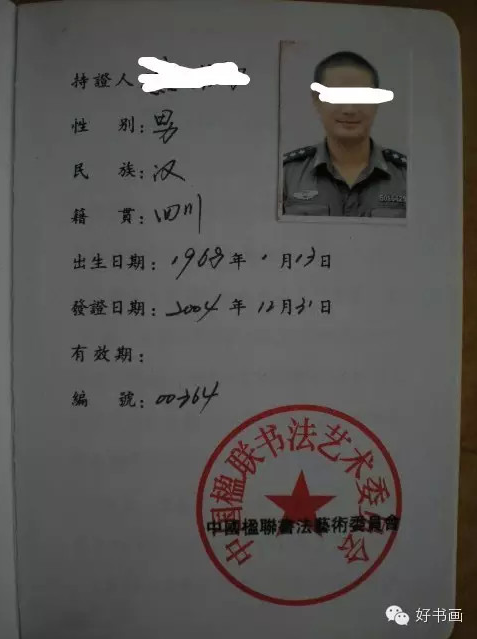 持證人
性 别: 男
民 族: 汉
籍 貫: 四川
出生日期: 1968年1月13日
發證日期: 2004年12月31日
有效期:
編 號: 00364
中国楹联书法艺术委员会
中國楹聯書法藝術委員會
好书画